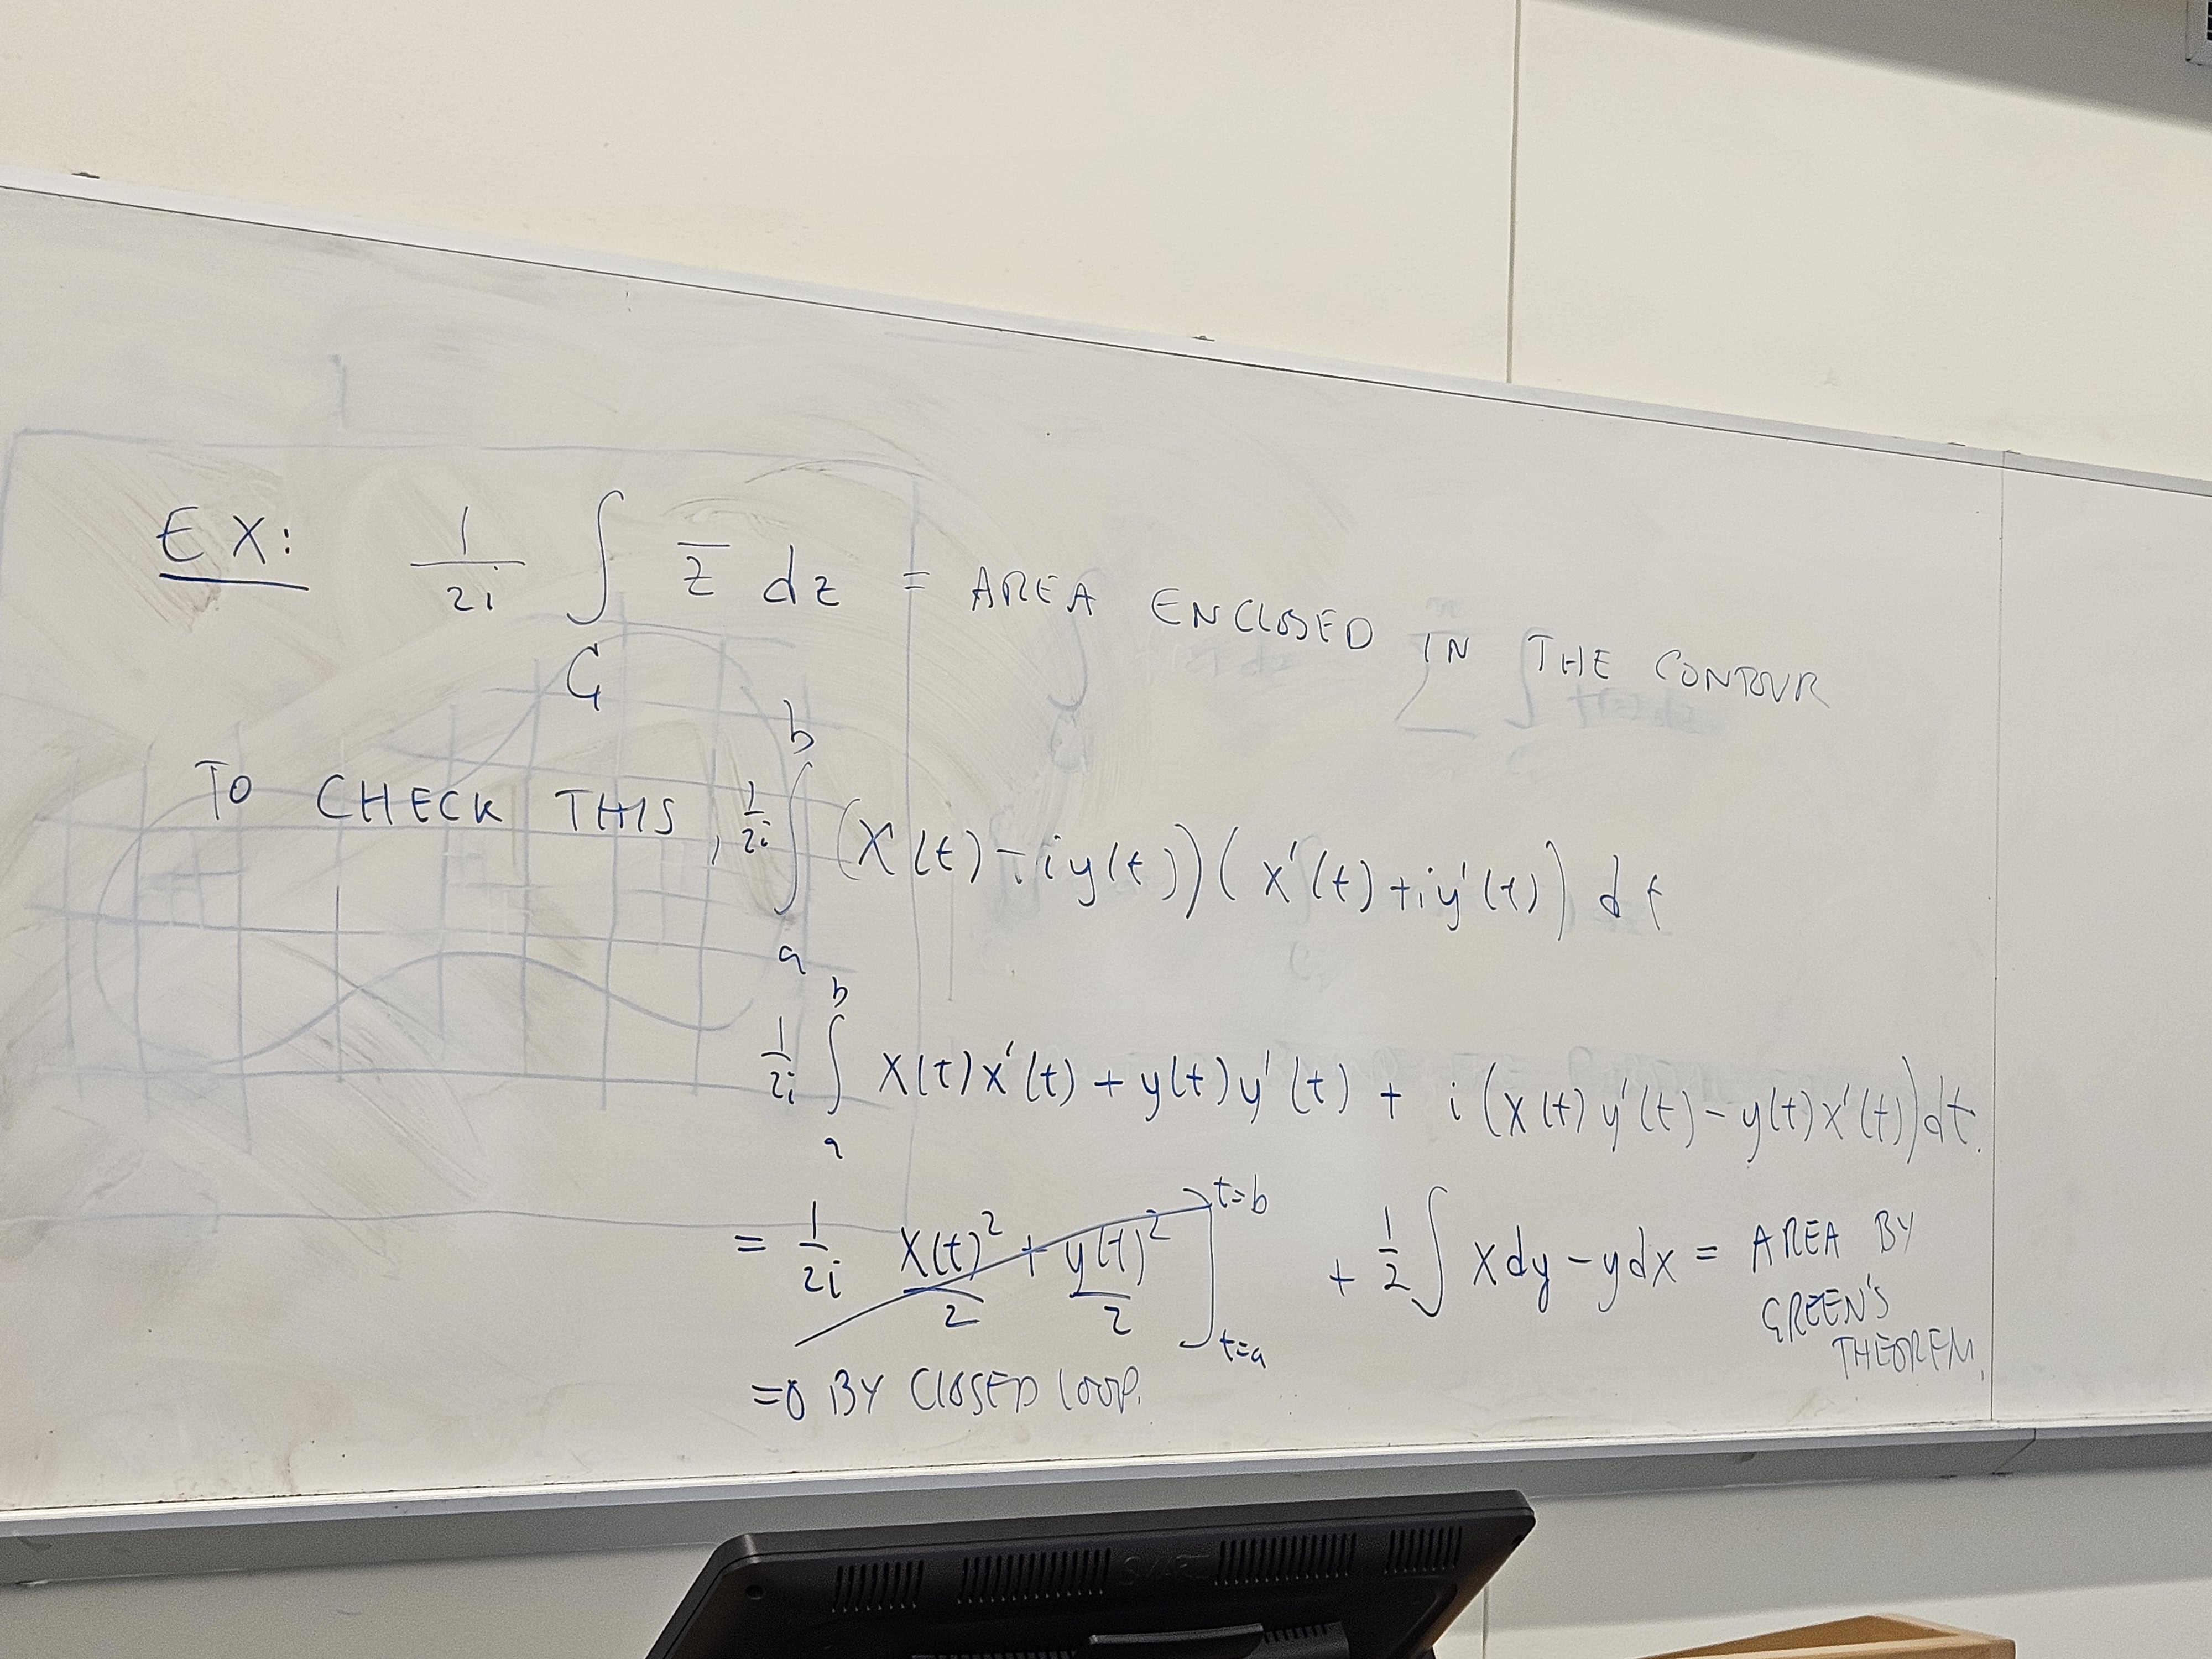 EX: 1/2i ∫_C z̅ dz = AREA ENCLOSED IN THE CONTOUR
TO CHECK THIS, 1/2i ∫_a^b (x(t) - iy(t))(x'(t) + iy'(t)) dt
1/2i ∫_a^b x(t)x'(t) + y(t)y'(t) + i(x(t)y'(t) - y(t)x'(t))dt.
= 1/2i x(t)²/2 + y(t)²/2 ]_{t=a}^{t=b} + 1/2 ∫ xdy - ydx = AREA BY
GREEN'S
THEOREM.
=0 BY CLOSED LOOP.
SMART